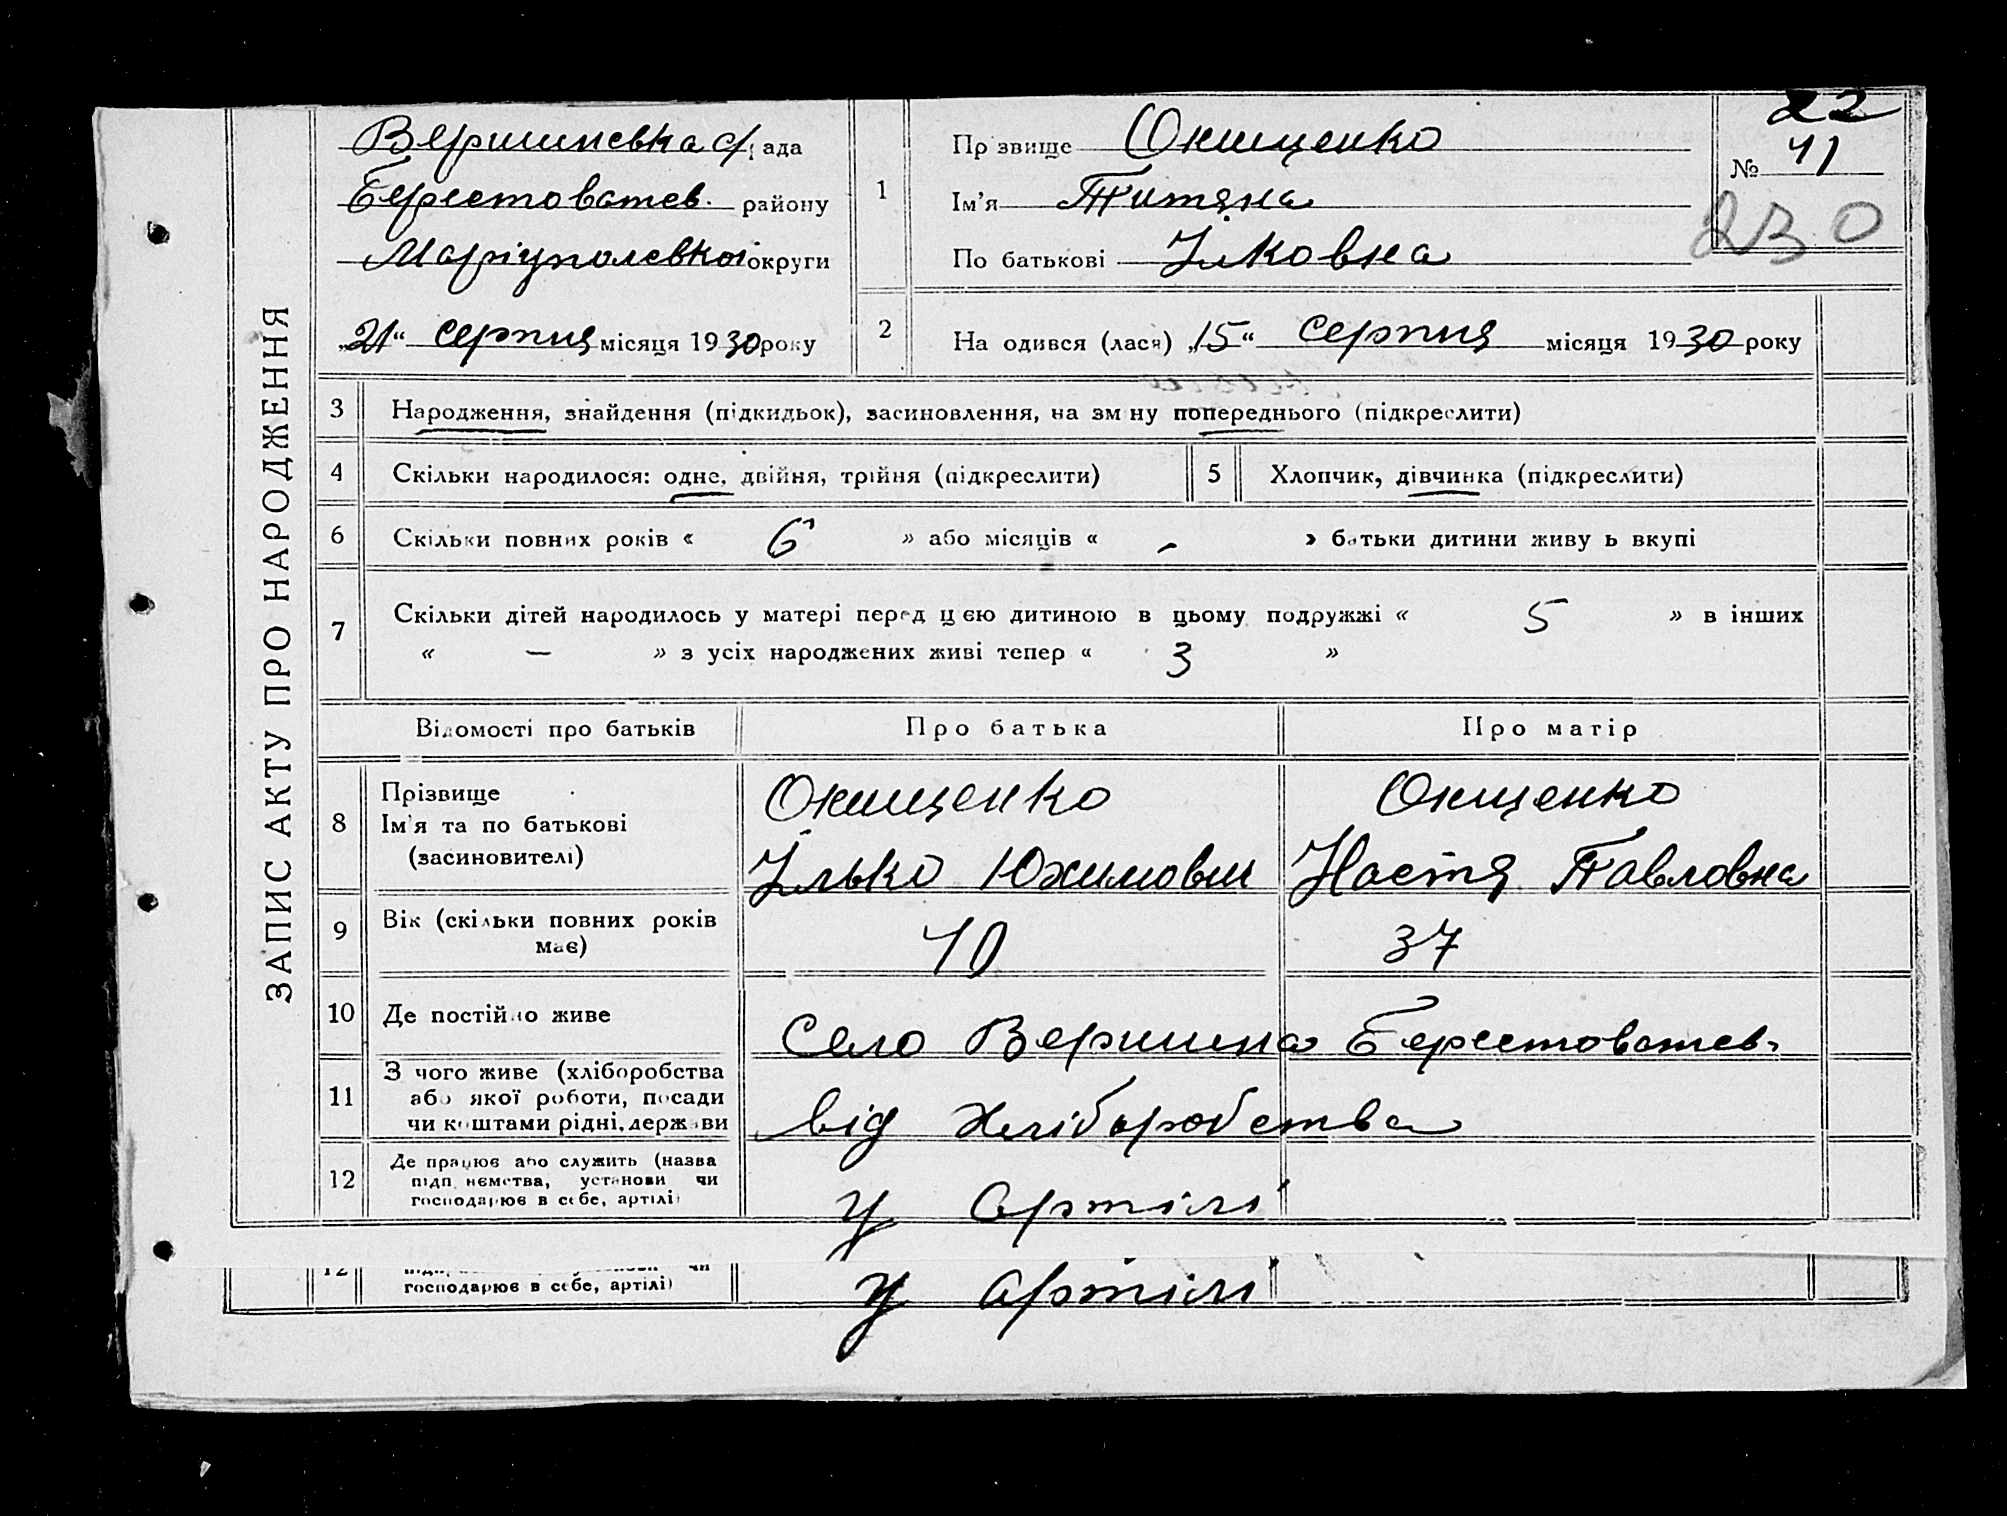 ЗАПИС АКТУ ПРО НАРОДЖЕННЯ
Вершинська с/рада
Берестоватев. району
Маріупольської округи
„21“ серпня місяця 1930 року
22
№ 41
230
1
Прізвище Онищенко
Ім'я Титяна
По батькові Ілковна
2
Народився (лася) „15“ серпня місяця 1930 року
3 Народження, знайдення (підкидьок), засиновлення, на зміну попереднього (підкреслити)
4 Скільки народилося: одне, двійня, трійня (підкреслити)
5 Хлопчик, дівчинка (підкреслити)
6 Скільки повних років « 6 » або місяців « - » батьки дитини живуть вкупі
7 Скільки дітей народилось у матері перед цією дитиною в цьому подружжі « 5 » в інших
« — » з усіх народжених живі тепер « 3 »
Відомості про батьків Про батька Про матір
8 Прізвище Онищенко Онищенко
Ім'я та по батькові
(засиновителі) Ілько Юхимович Настя Павловна
9 Вік (скільки повних років
має) 40 37
10 Де постійно живе Село Вершина Берестоватев.
11 З чого живе (хліборобства
або якої роботи, посади
чи коштами рідні, держави від хліборобства
12 Де працює або служить (назва
підприємства, установи чи
господарює в себе, артілі) у артілі
12 чи
господарює в себе, артілі) у артілі